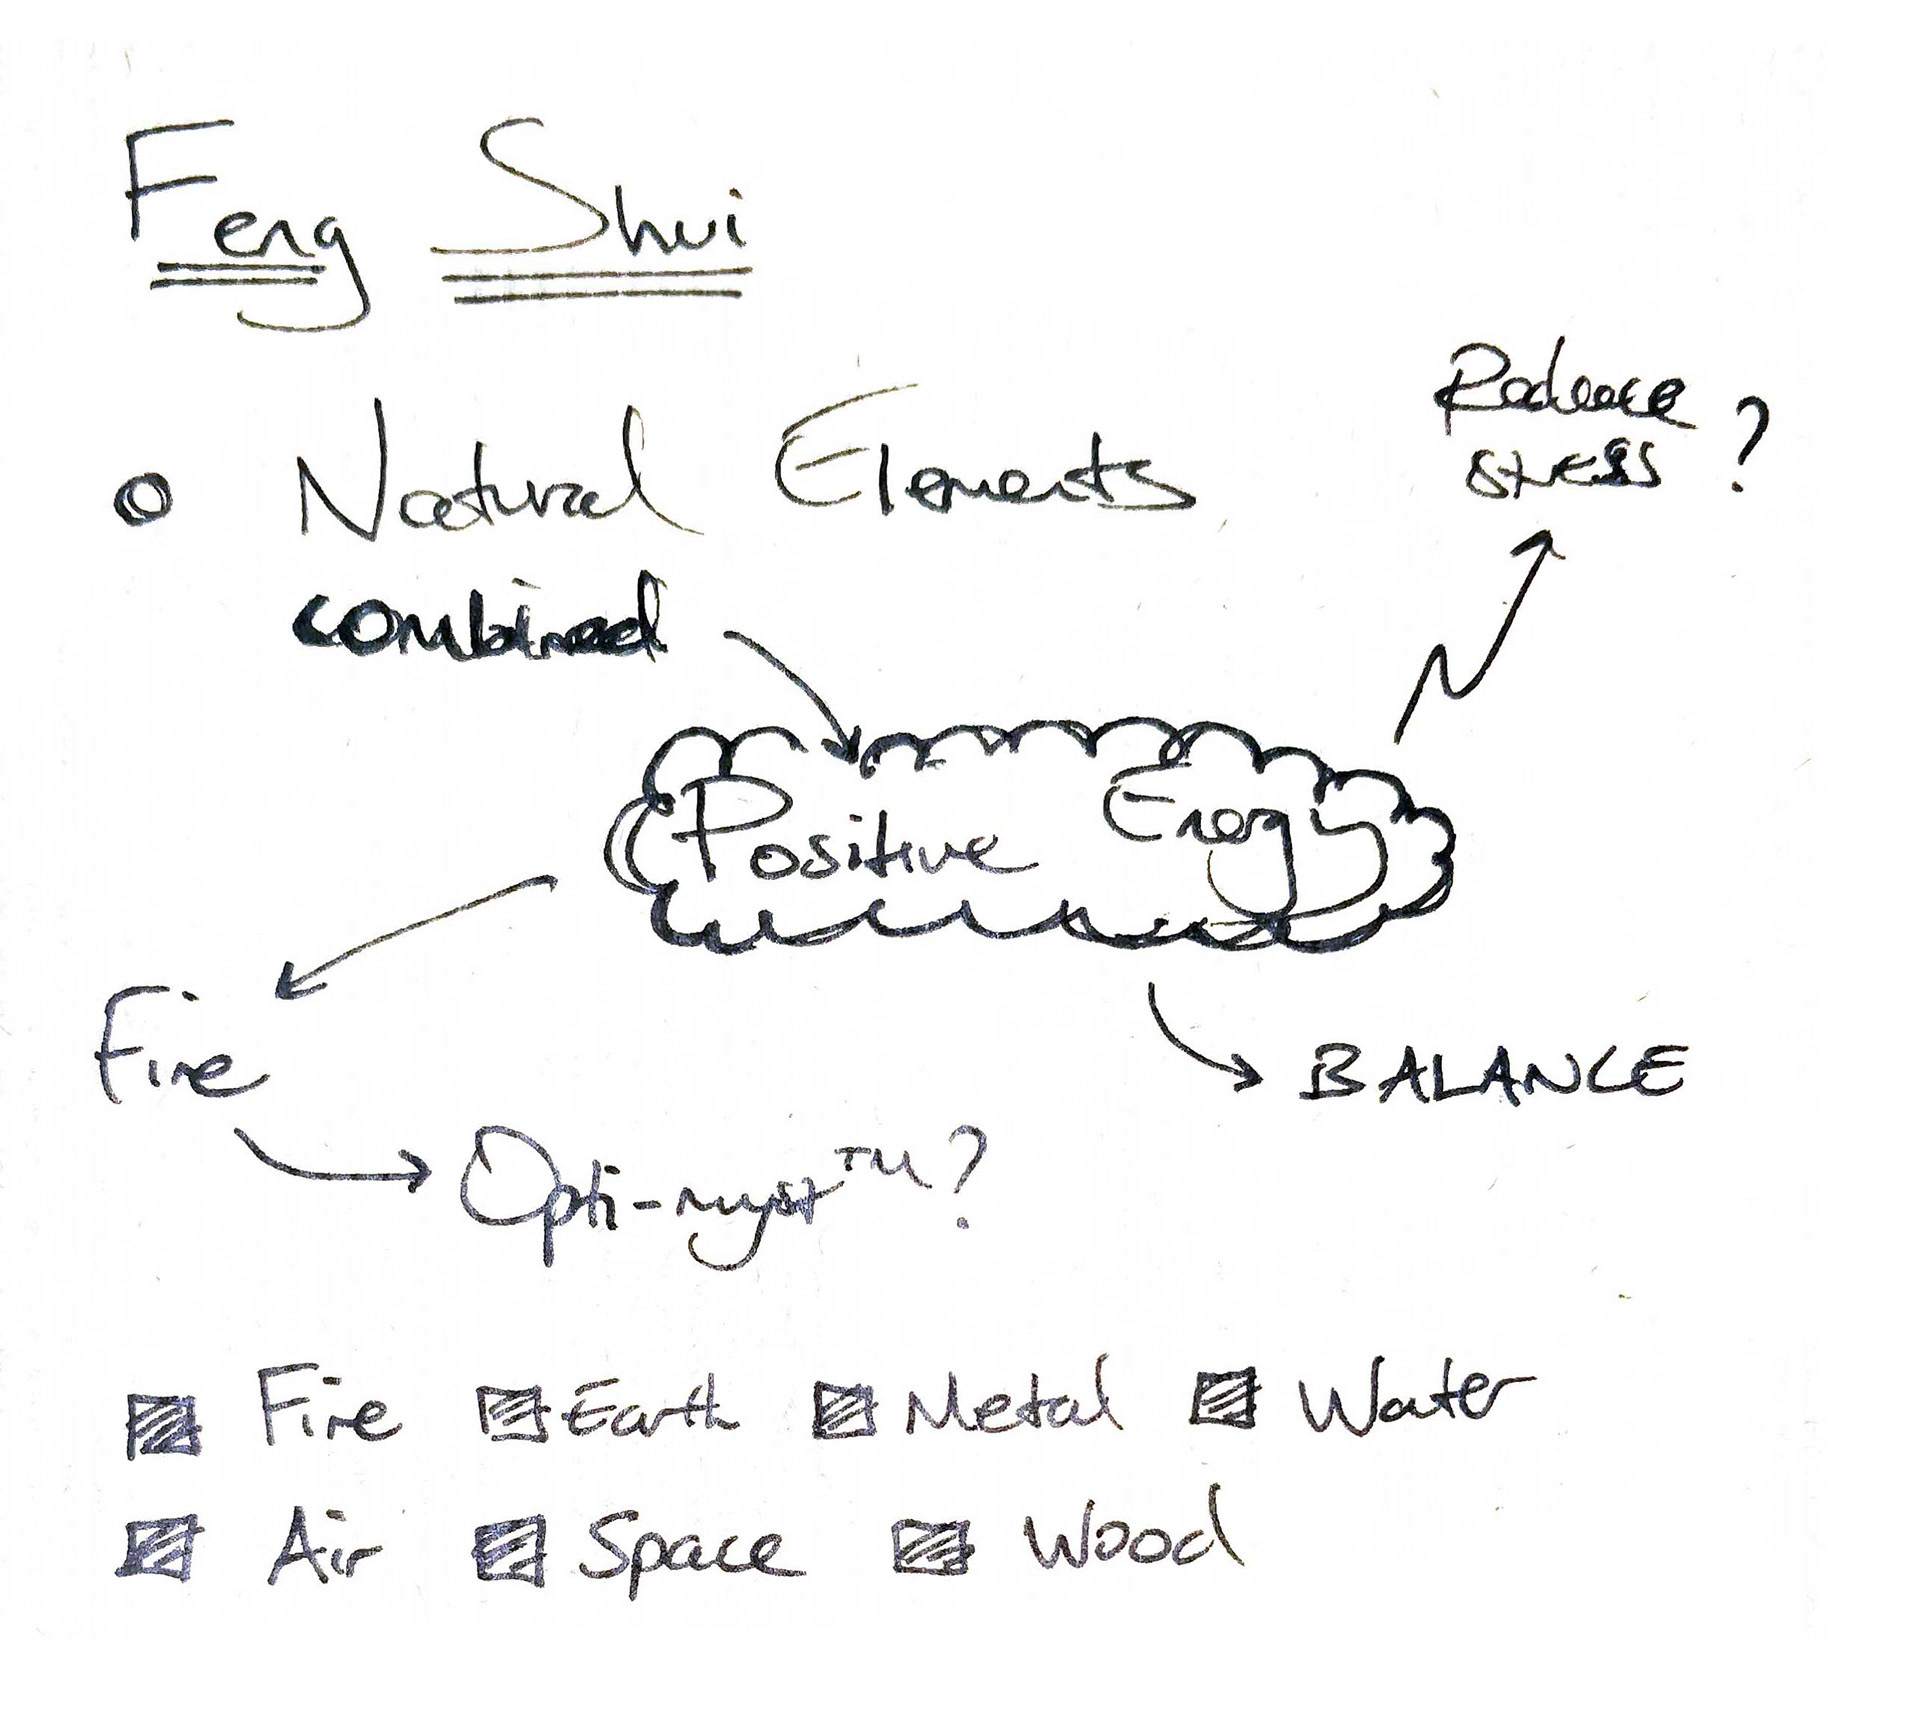 Feng Shui
Natural Elements
combined
Reduce
stress ?
Positive Energy
Fire
BALANCE
Opti-myst™?
Fire Earth Metal Water
Air Space Wood